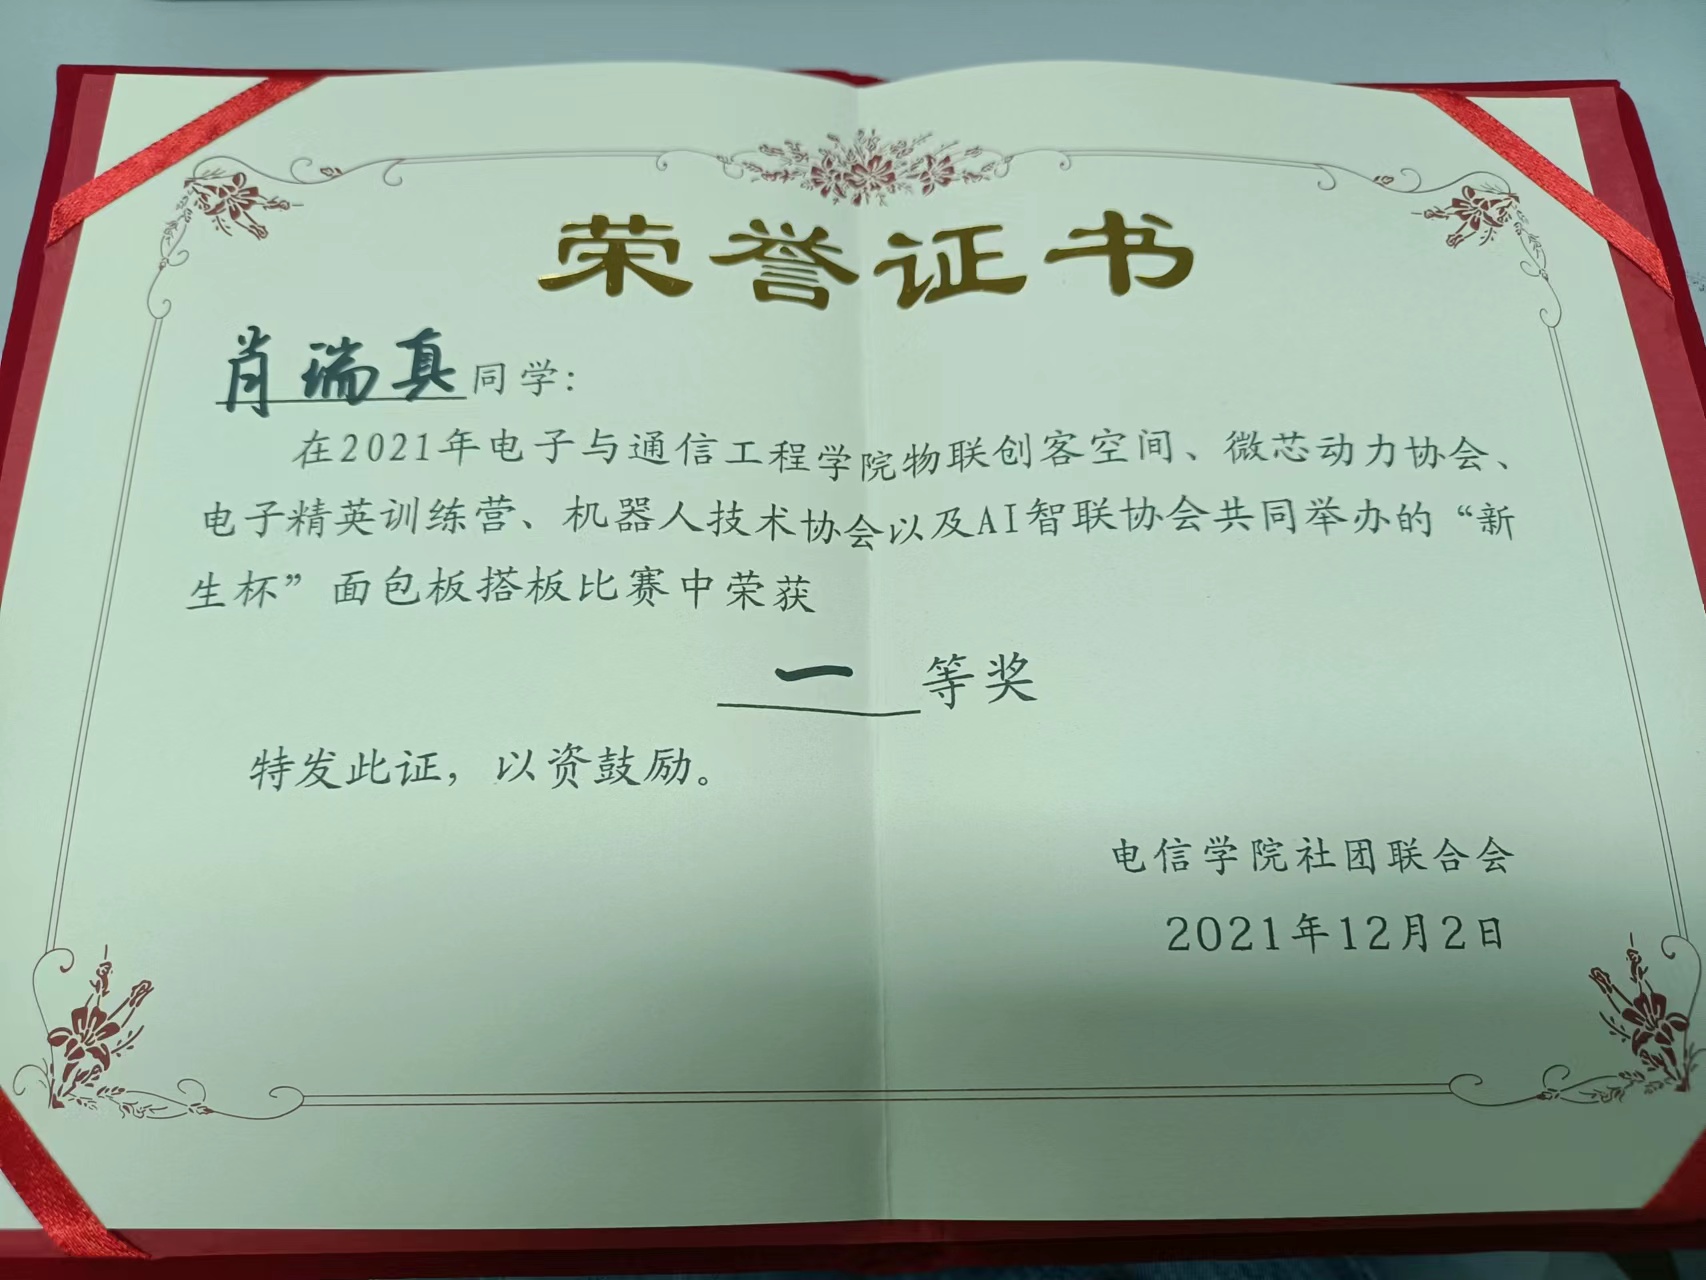 荣誉证书
肖瑞真同学：
在2021年电子与通信工程学院物联创客空间、微芯动力协会、
电子精英训练营、机器人技术协会以及AI智联协会共同举办的“新
生杯”面包板搭板比赛中荣获
一等奖
特发此证，以资鼓励。
电信学院社团联合会
2021年12月2日